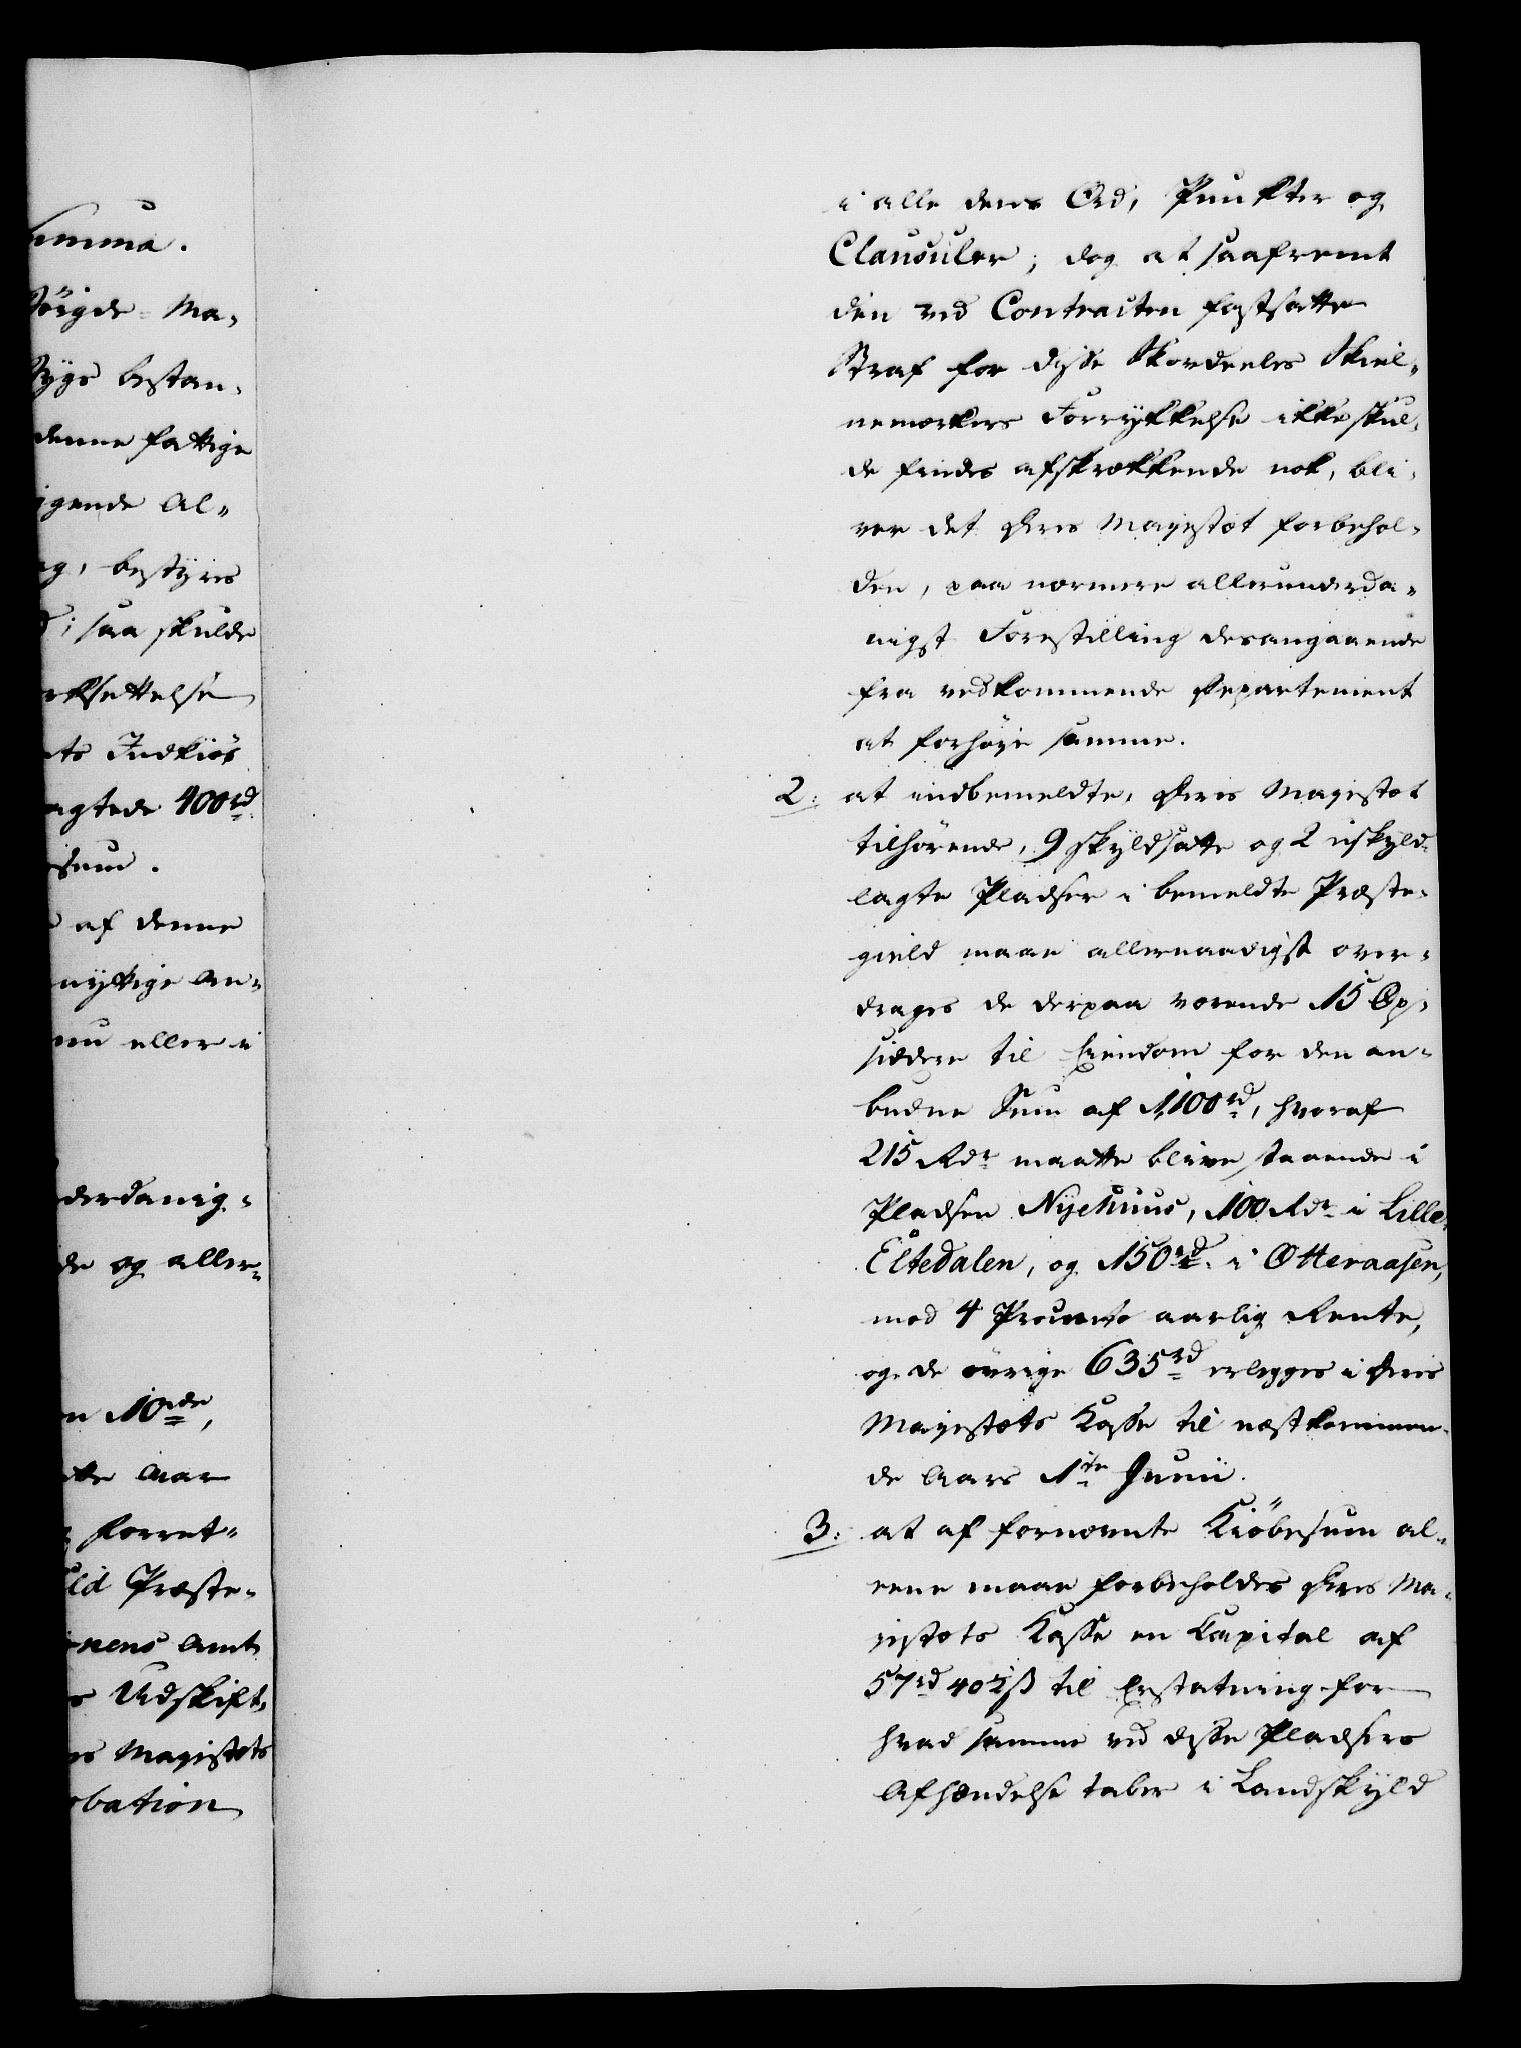 umma.
Sörgde-Ma-
Sygs bestan-
denne fattige
igende Al-
ag, bestyres
d; saa skulde
rksettelse
ts Indkiös
agtede 400rd
sum.
af denne
nyttige An-
nu eller i
derdanig-
de og aller-
n 10de,
tte Aar
forret-
ld Præste-
nens Amt
s Udskift-
es Majestæts
bation
i alle dens Ord, Punkter og
Clausuler; dog at saafremt
den ved Contracten fastsatte
Straf for disse Skovdeeles Skiel-
nemærkers Forrykkelse ikke skul-
de findes afskrækkende nok, bli-
ver det Deres Majestæt forbehol-
den, paa nærmere allerunderda-
nigst Forestilling desangaaende
fra vedkommende Departement
at forhøje samme.
2: at indbemeldte, Deres Majestæt
tilhørende, 9 skyldsatte og 2 uskyld-
lagte Pladser i bemeldte Præste-
gield maae allernaadigst over-
drages de derpaa værende 15 Op-
siddere til Eiendom for den an-
budne Sum af 1,100rd, hvoraf
215 Rdr maatte blive staaende i
Pladsen Nyehuus, 100 Rdr i Lille
Eltedalen, og 150rd i Otteraasen,
mod 4 Procento aarlig Rente,
og de øvrige 635rd erlegges i Deres
Majestæts Kasse til næstkommen-
de Aars 1te Junii.
3: at af fornævnte Kiöbesum al-
eene maae forbeholdes Deres Ma-
jestæts Kasse en Kapital af
57rd 40½ß til Erstatning for
hvad samme ved disse Pladsers
Afhændelse taber i Landskyld